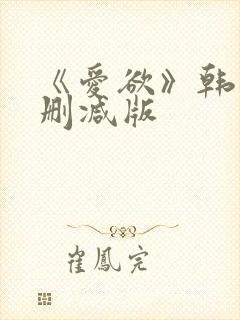 《爱欲》韩
删减版
崔凤完